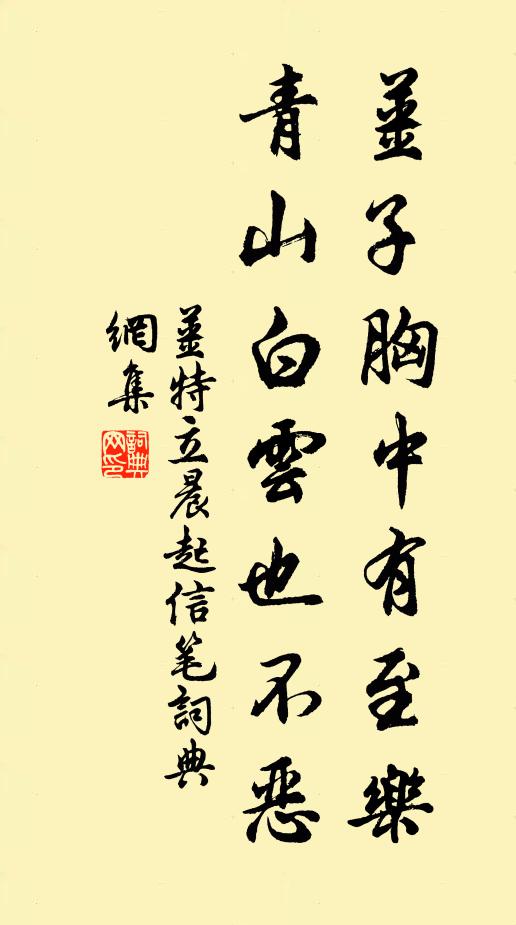 薑子胸中有至樂
青山白雲也不惡
薑特立晨起信笔詞典
網集
詞典網印